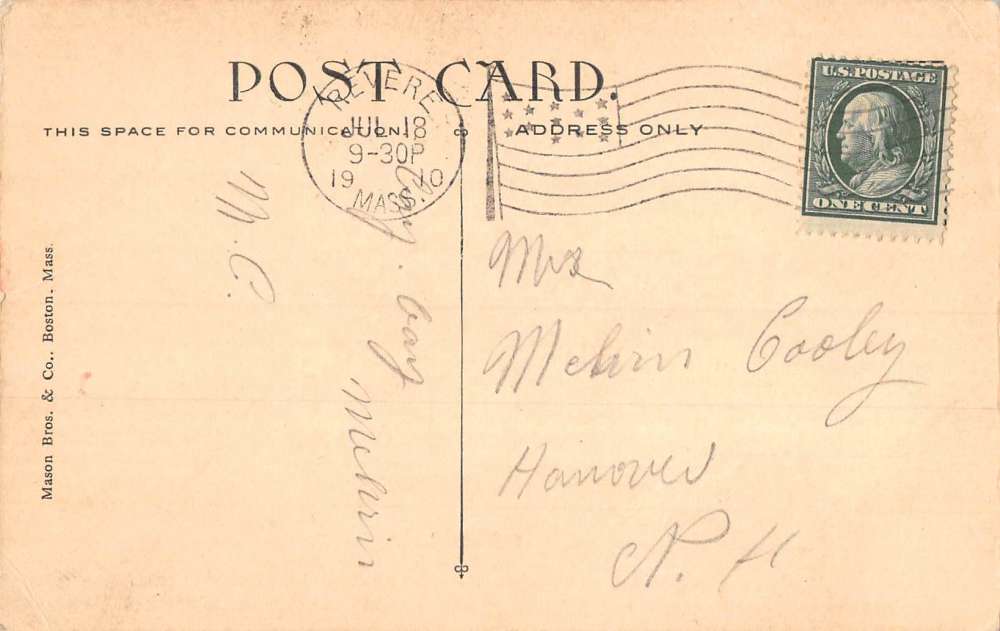 POST CARD.
THIS SPACE FOR COMMUNICATION.
ADDRESS ONLY
REVERE
JUL 18
9-30P
1910
MASS.
U.S. POSTAGE
ONE CENT
Mason Bros. & Co., Boston, Mass.
boy
M. C.
Mrs
Melvin Cooley
Hanover
N. H